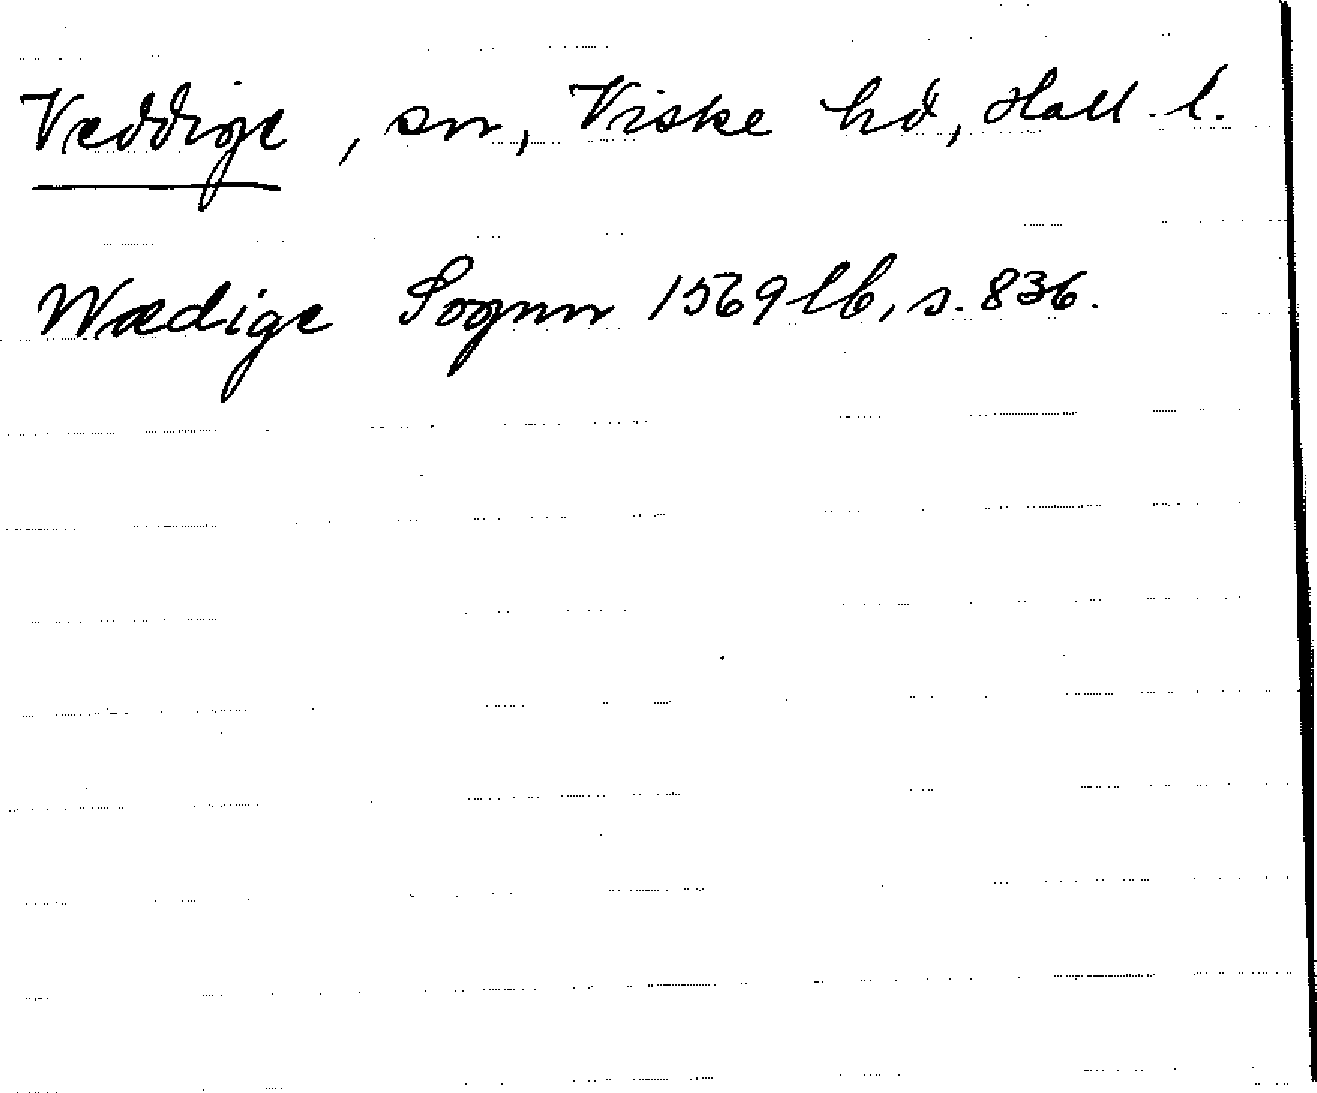 Veddige, sn, Viske hd, Hall. l.
Wædige Sognn 1569 lb, s. 836.